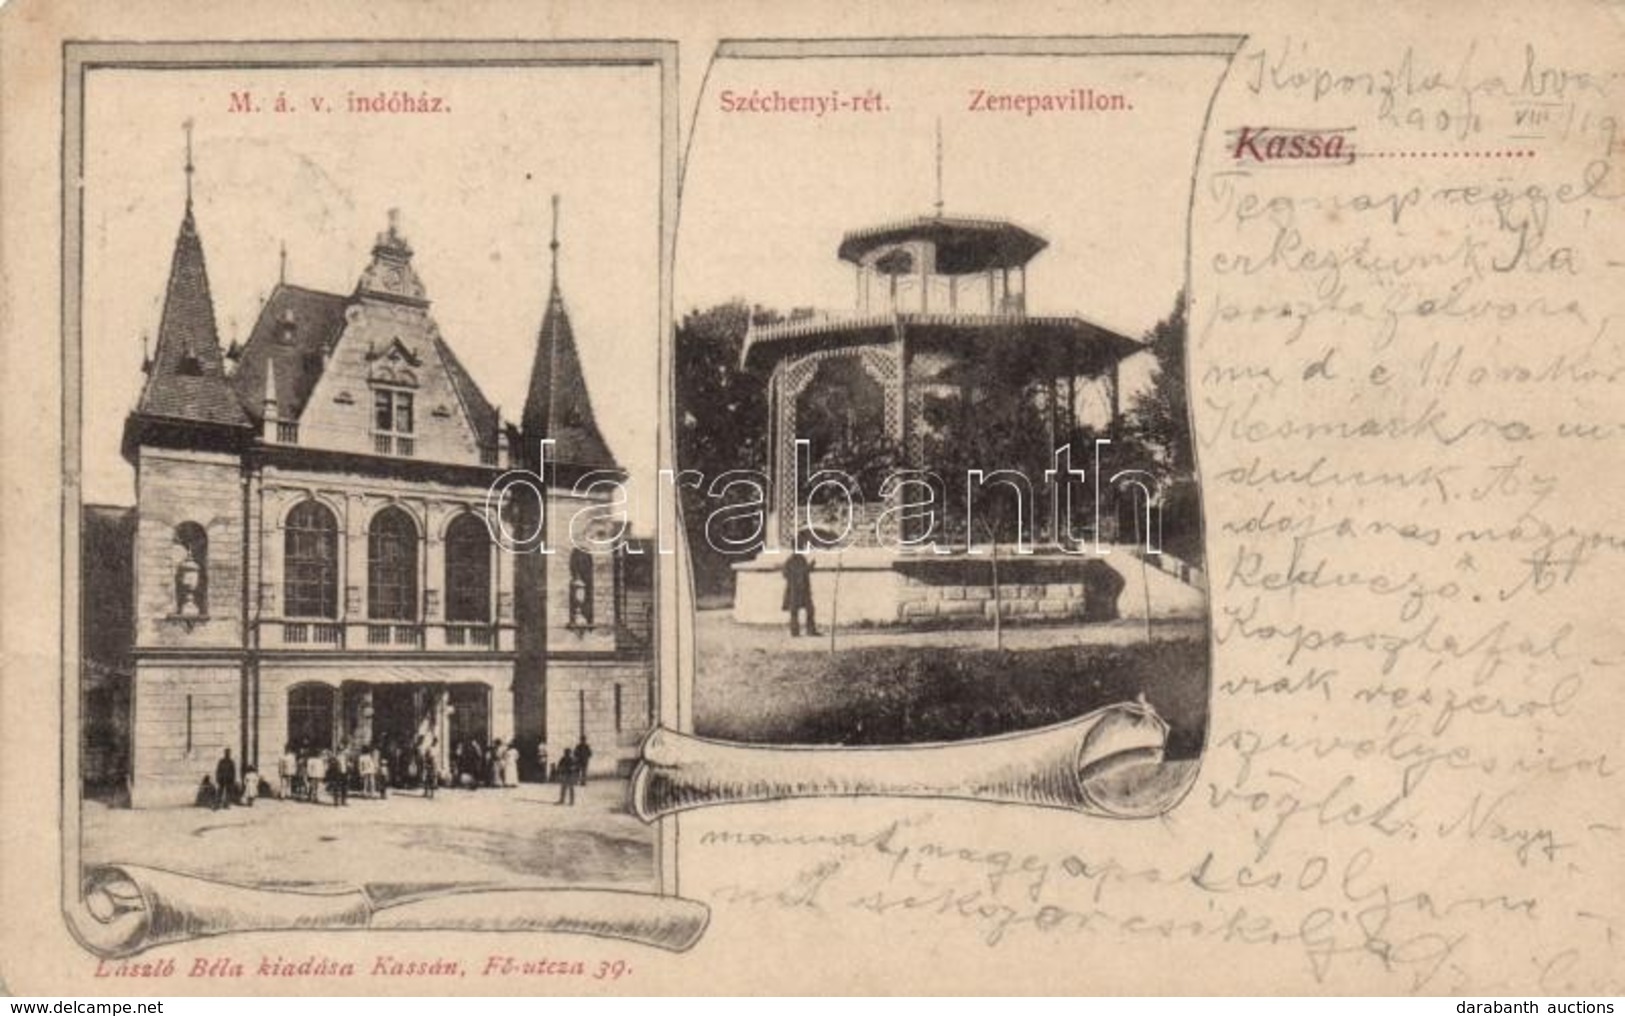 M. á. v. indóház.
Széchenyi-rét. Zenepavillon.
Káposztafalva
1901 VIII/19
Kassa, ..................
Tegnap reggel
érkeztünk Ká-
posztafalvára,
ma d. e. 11 órakor
Késmárkra in-
dulunk. Az
időjárás nagyon
kedvező. A
Káposztafal-
viak részéről
szívélyes üd-
vözlet. Nagy-
mamát, nagyapát és Olga né-
nit sokszor csókolja
László Béla kiadása Kassán, Fő-utcza 39.
darabanth
darabanth auctions